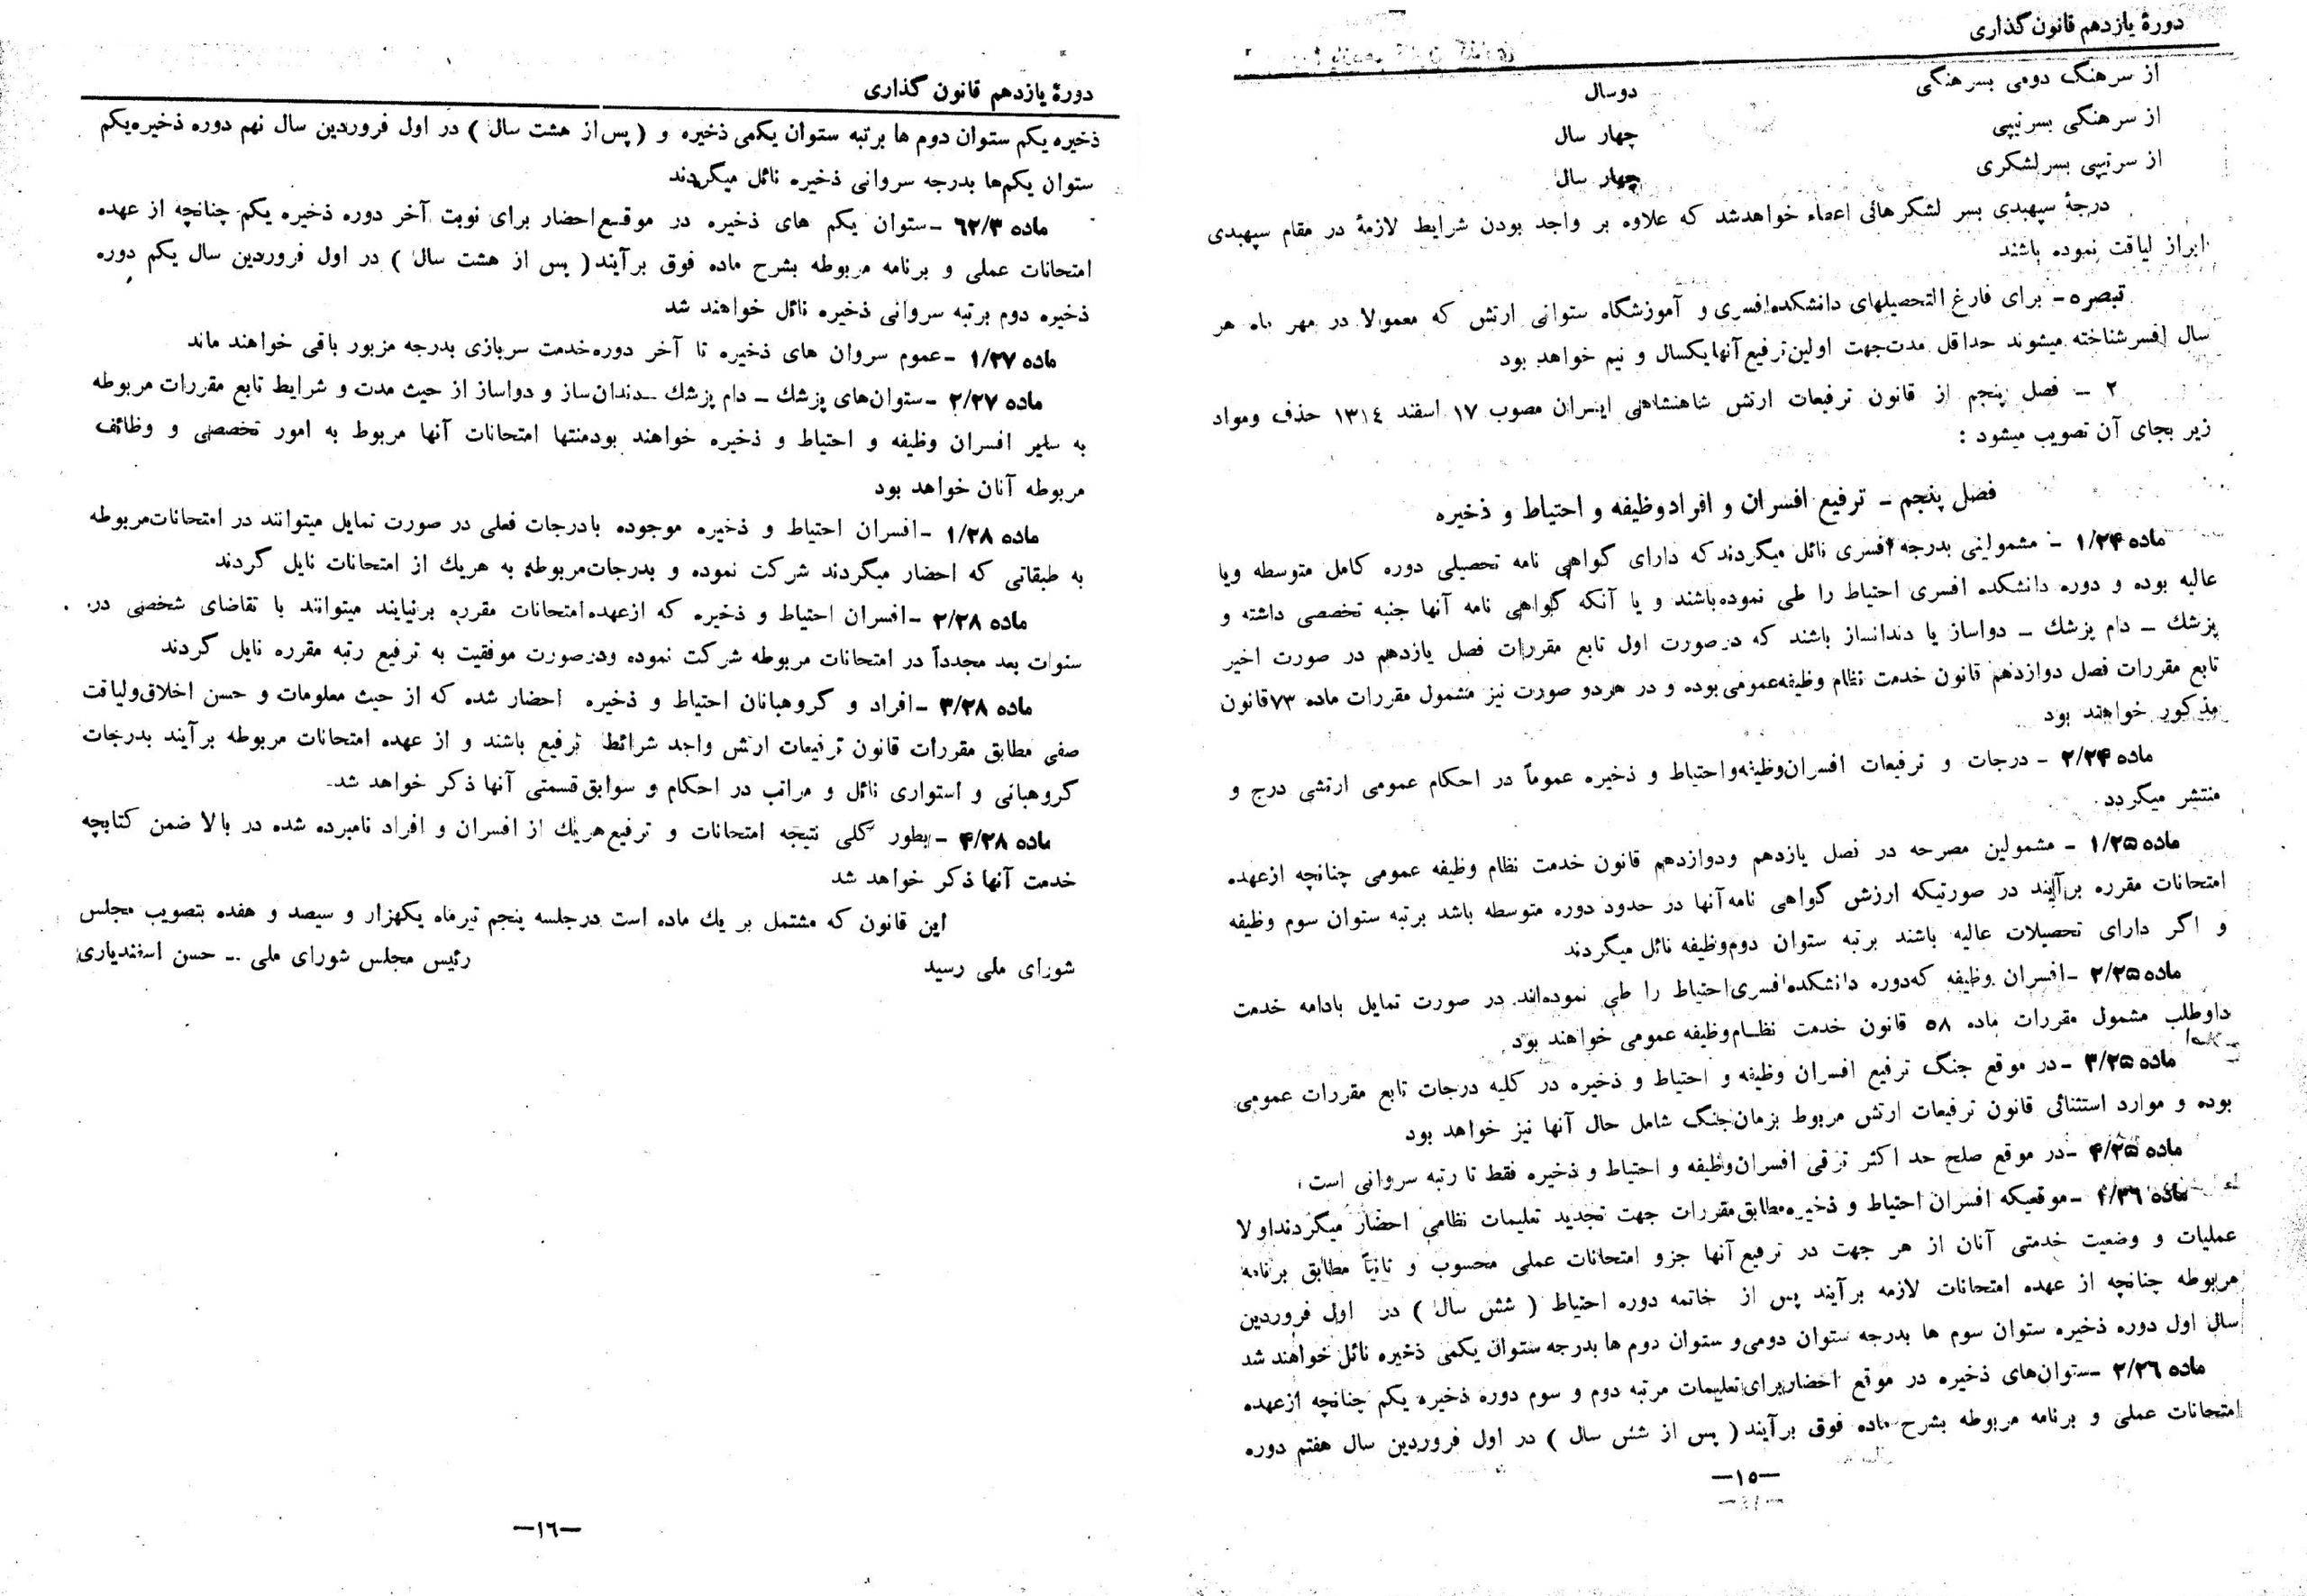 دورهٔ یازدهم قانون‌گذاری
از سرهنگ دومی بسرهنگی دوسال
از سرهنگی بسرتیپی چهار سال
از سرتیپی بسرلشکری چهار سال
درجهٔ سپهبدی بسر لشکرهائی اعطاء خواهدشد که علاوه بر واجد بودن شرایط لازمهٔ در مقام سپهبدی
ابراز لیاقت نموده باشند
تبصره ـ برای فارغ التحصیلهای دانشکده‌افسری و آموزشگاه ستوانی ارتش که معمولا در مهر ماه هر
سال افسرشناخته میشوند حداقل مدت‌جهت اولین‌ترفیع‌آنهایکسال و نیم خواهد بود
۲ ـ فصل پنجم از قانون ترفیعات ارتش شاهنشاهی ایران مصوب ۱۷ اسفند ۱۳۱٤ حذف ومواد
زیر بجای آن تصویب میشود :
فصل پنجم ـ ترفیع افسران و افرادوظیفه و احتیاط و ذخیره
ماده ۱/۲۴ ـ مشمولینی بدرجه افسری نائل میگردندکه دارای گواهی نامه تحصیلی دوره کامل متوسطه ویا
عالیه بوده و دوره دانشکده افسری احتیاط را طی نموده‌باشند و یا آنکه گواهی نامه آنها جنبه تخصصی داشته و
پزشك ـ دام پزشك ـ دواساز یا دندانساز باشند که درصورت اول تابع مقررات فصل یازدهم در صورت اخیر
تابع مقررات فصل دوازدهم قانون خدمت نظام وظیفه‌عمومی‌بوده و در هردو صورت نیز مشمول مقررات ماده ۷۳قانون
مذکور خواهند بود
ماده ۲/۲۴ ـ درجات و ترفیعات افسران‌وظیفه‌واحتیاط و ذخیره عموماً در احکام عمومی ارتشی درج و
منتشر میگردد.
ماده ۱/۲۵ ـ مشمولین مصرحه در فصل یازدهم ودوازدهم قانون خدمت نظام وظیفه عمومی چنانچه ازعهده
امتحانات مقرره برآیند در صورتیکه ارزش گواهی نامه‌آنها در حدود دوره متوسطه باشد برتبه ستوان سوم وظیفه
و اگر دارای تحصیلات عالیه باشند برتبه ستوان دوم‌وظیفه نائل میگردند
ماده ۲/۲۵ ـافسران وظیفه که‌دوره دانشکده‌افسری‌احتیاط را طی نموده‌اند در صورت تمایل بادامه خدمت
داوطلب مشمول مقررات ماده ۵۸ قانون خدمت نظام‌وظیفه عمومی خواهند بود
ماده ۳/۲۵ ـدر موقع جنگ ترفیع افسران وظیفه و احتیاط و ذخیره در کلیه درجات تابع مقررات عمومی
بوده و موارد استثنائی قانون ترفیعات ارتش مربوط بزمان‌جنگ شامل حال آنها نیز خواهد بود
ماده ۴/۲۵ ـدر موقع صلح حد اکثر ترقی افسران‌وظیفه و احتیاط و ذخیره فقط تا رتبه سروانی است
ماده ۱/۲۶ ـموقعیکه افسران احتیاط و ذخیره‌مطابق‌مقررات جهت تجدید تعلیمات نظامی احضار میگردنداولا
عملیات و وضعیت خدمتی آنان از هر جهت در ترفیع‌آنها جزو امتحانات عملی محسوب و ثانیاً مطابق برنامه
مربوطه چنانچه از عهده امتحانات لازمه برآیند پس از خاتمه دوره احتیاط ( شش سال ) در اول فروردین
سال اول دوره ذخیره ستوان سوم ها بدرجه ستوان دومی‌و ستوان دوم ها بدرجه ستوان یکمی ذخیره نائل خواهند شد
ماده ۲/۲٦ ـستوان‌های ذخیره در موقع احضاربرای‌تعلیمات مرتبه دوم و سوم دوره ذخیره یکم چنانچه ازعهده
امتحانات عملی و برنامه مربوطه بشرح ماده فوق برآیند ( پس از شش سال ) در اول فروردین سال هفتم دوره
—۱۵—
دورهٔ یازدهم قانون گذاری
ذخیره یکم ستوان دوم ها برتبه ستوان یکمی ذخیره و ( پس‌از هشت سال ) در اول فروردین سال نهم دوره ذخیره‌یکم
ستوان یکم‌ها بدرجه سروانی ذخیره نائل میگردند
ماده ٦۲/۳ ـستوان یکم های ذخیره در موقع‌احضار برای نوبت آخر دوره ذخیره یکم چنانچه از عهده
امتحانات عملی و برنامه مربوطه بشرح ماده فوق برآیند ( پس از هشت سال ) در اول فروردین سال یکم دوره
ذخیره دوم برتبه سروانی ذخیره نائل خواهند شد
ماده ۱/۲۷ ـعموم سروان های ذخیره تا آخر دوره‌خدمت سربازی بدرجه مزبور باقی خواهند ماند
ماده ۲/۲۷ ـستوان‌های پزشك ـ دام پزشك ـدندان‌ساز و دواساز از حیث مدت و شرایط تابع مقررات مربوطه
به سایر افسران وظیفه و احتیاط و ذخیره خواهند بودمنتها امتحانات آنها مربوط به امور تخصصی و وظائف
مربوطه آنان خواهد بود
ماده ۱/۲۸ ـافسران احتیاط و ذخیره موجوده بادرجات فعلی در صورت تمایل میتوانند در امتحانات‌مربوطه
به طبقاتی که احضار میگردند شرکت نموده و بدرجات‌مربوطه به هریك از امتحانات نایل گردند
ماده ۲/۲۸ ـافسران احتیاط و ذخیره که ازعهده‌امتحانات مقرره برنیایند میتوانند با تقاضای شخصی در
سنوات بعد مجدداً در امتحانات مربوطه شرکت نموده ودرصورت موفقیت به ترفیع رتبه مقرره نایل گردند
ماده ۳/۲۸ ـافراد و گروهبانان احتیاط و ذخیره احضار شده که از حیث معلومات و حسن اخلاق‌ولیاقت
صفی مطابق مقررات قانون ترفیعات ارتش واجد شرائط ترفیع باشند و از عهده امتحانات مربوطه برآیند بدرجات
گروهبانی و استواری نائل و مراتب در احکام و سوابق‌قسمتی آنها ذکر خواهد شد
ماده ۴/۲۸ ـبطور کلی نتیجه امتحانات و ترفیع‌هریك از افسران و افراد نامبرده شده در بالا ضمن کتابچه
خدمت آنها ذکر خواهد شد
این قانون که مشتمل بر یك ماده است درجلسه پنجم تیرماه یکهزار و سیصد و هفده بتصویب مجلس
شورای ملی رسید رئیس مجلس شورای ملی ـ حسن اسفندیاری
—۱٦—